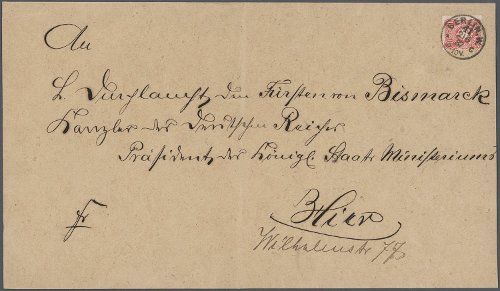 An
S. Durchlaucht, den Fürsten von Bismarck
Kanzler des Deutschen Reiches
Präsident, des Königl. Staats Ministeriums
Hier
Wilhelmstr 77
fr
BERLIN, W.